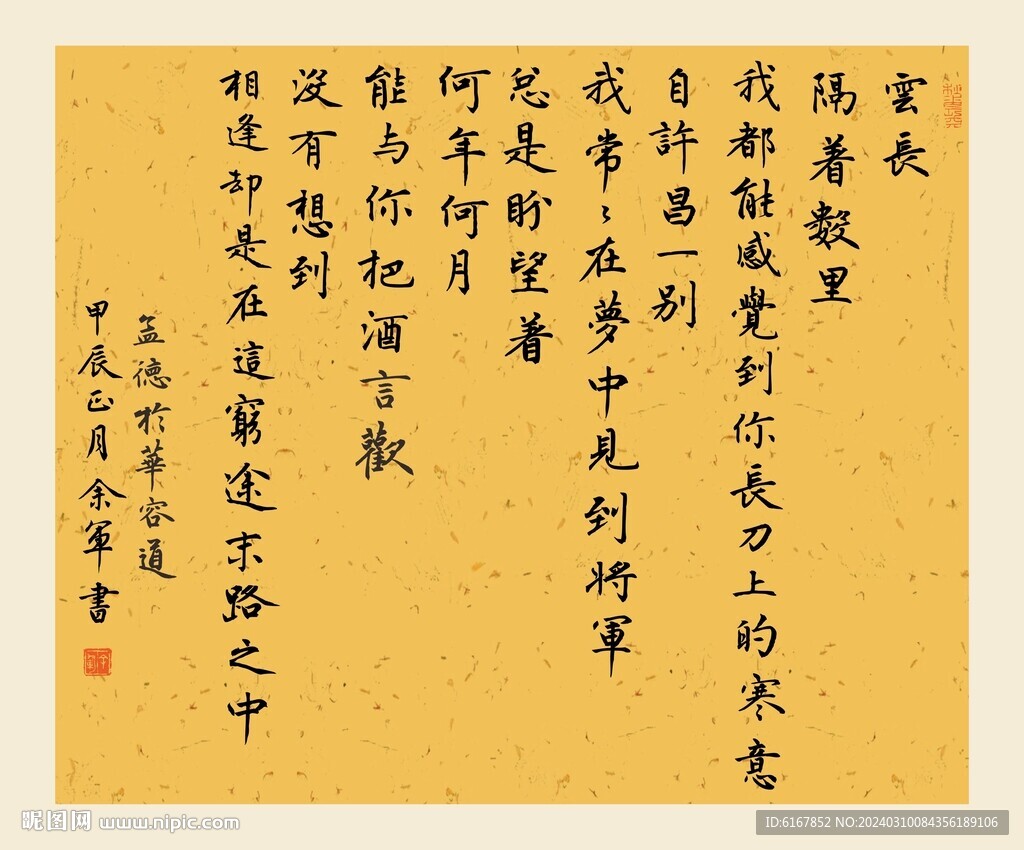 雲長
隔着數里
我都能感覺到你長刀上的寒意
自許昌一别
我常〻在夢中見到將軍
总是盼望着
何年何月
能与你把酒言歡
没有想到
相逢却是在這窮途末路之中
孟德於華容道
甲辰正月余軍書
昵图网 www.nipic.com
ID:6167852 NO:20240310084356189106